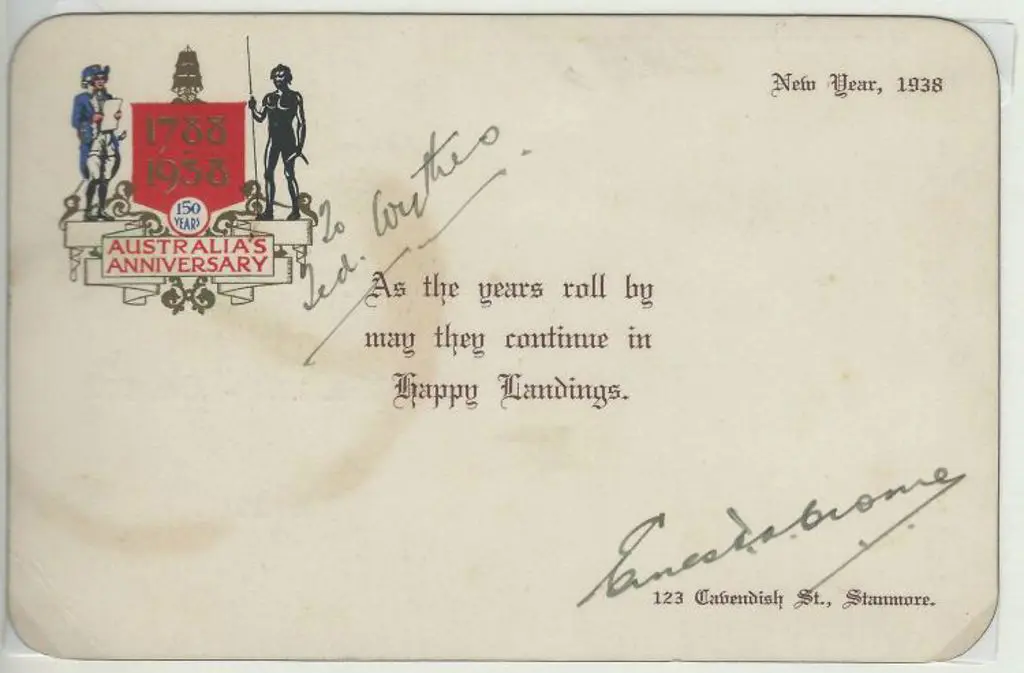 New Year, 1938
1788
1938
150
YEARS
AUSTRALIA'S
ANNIVERSARY
To
Ted. Wythes
As the years roll by
may they continue in
Happy Landings.
Ernest A. Crome
123 Cavendish St., Stanmore.